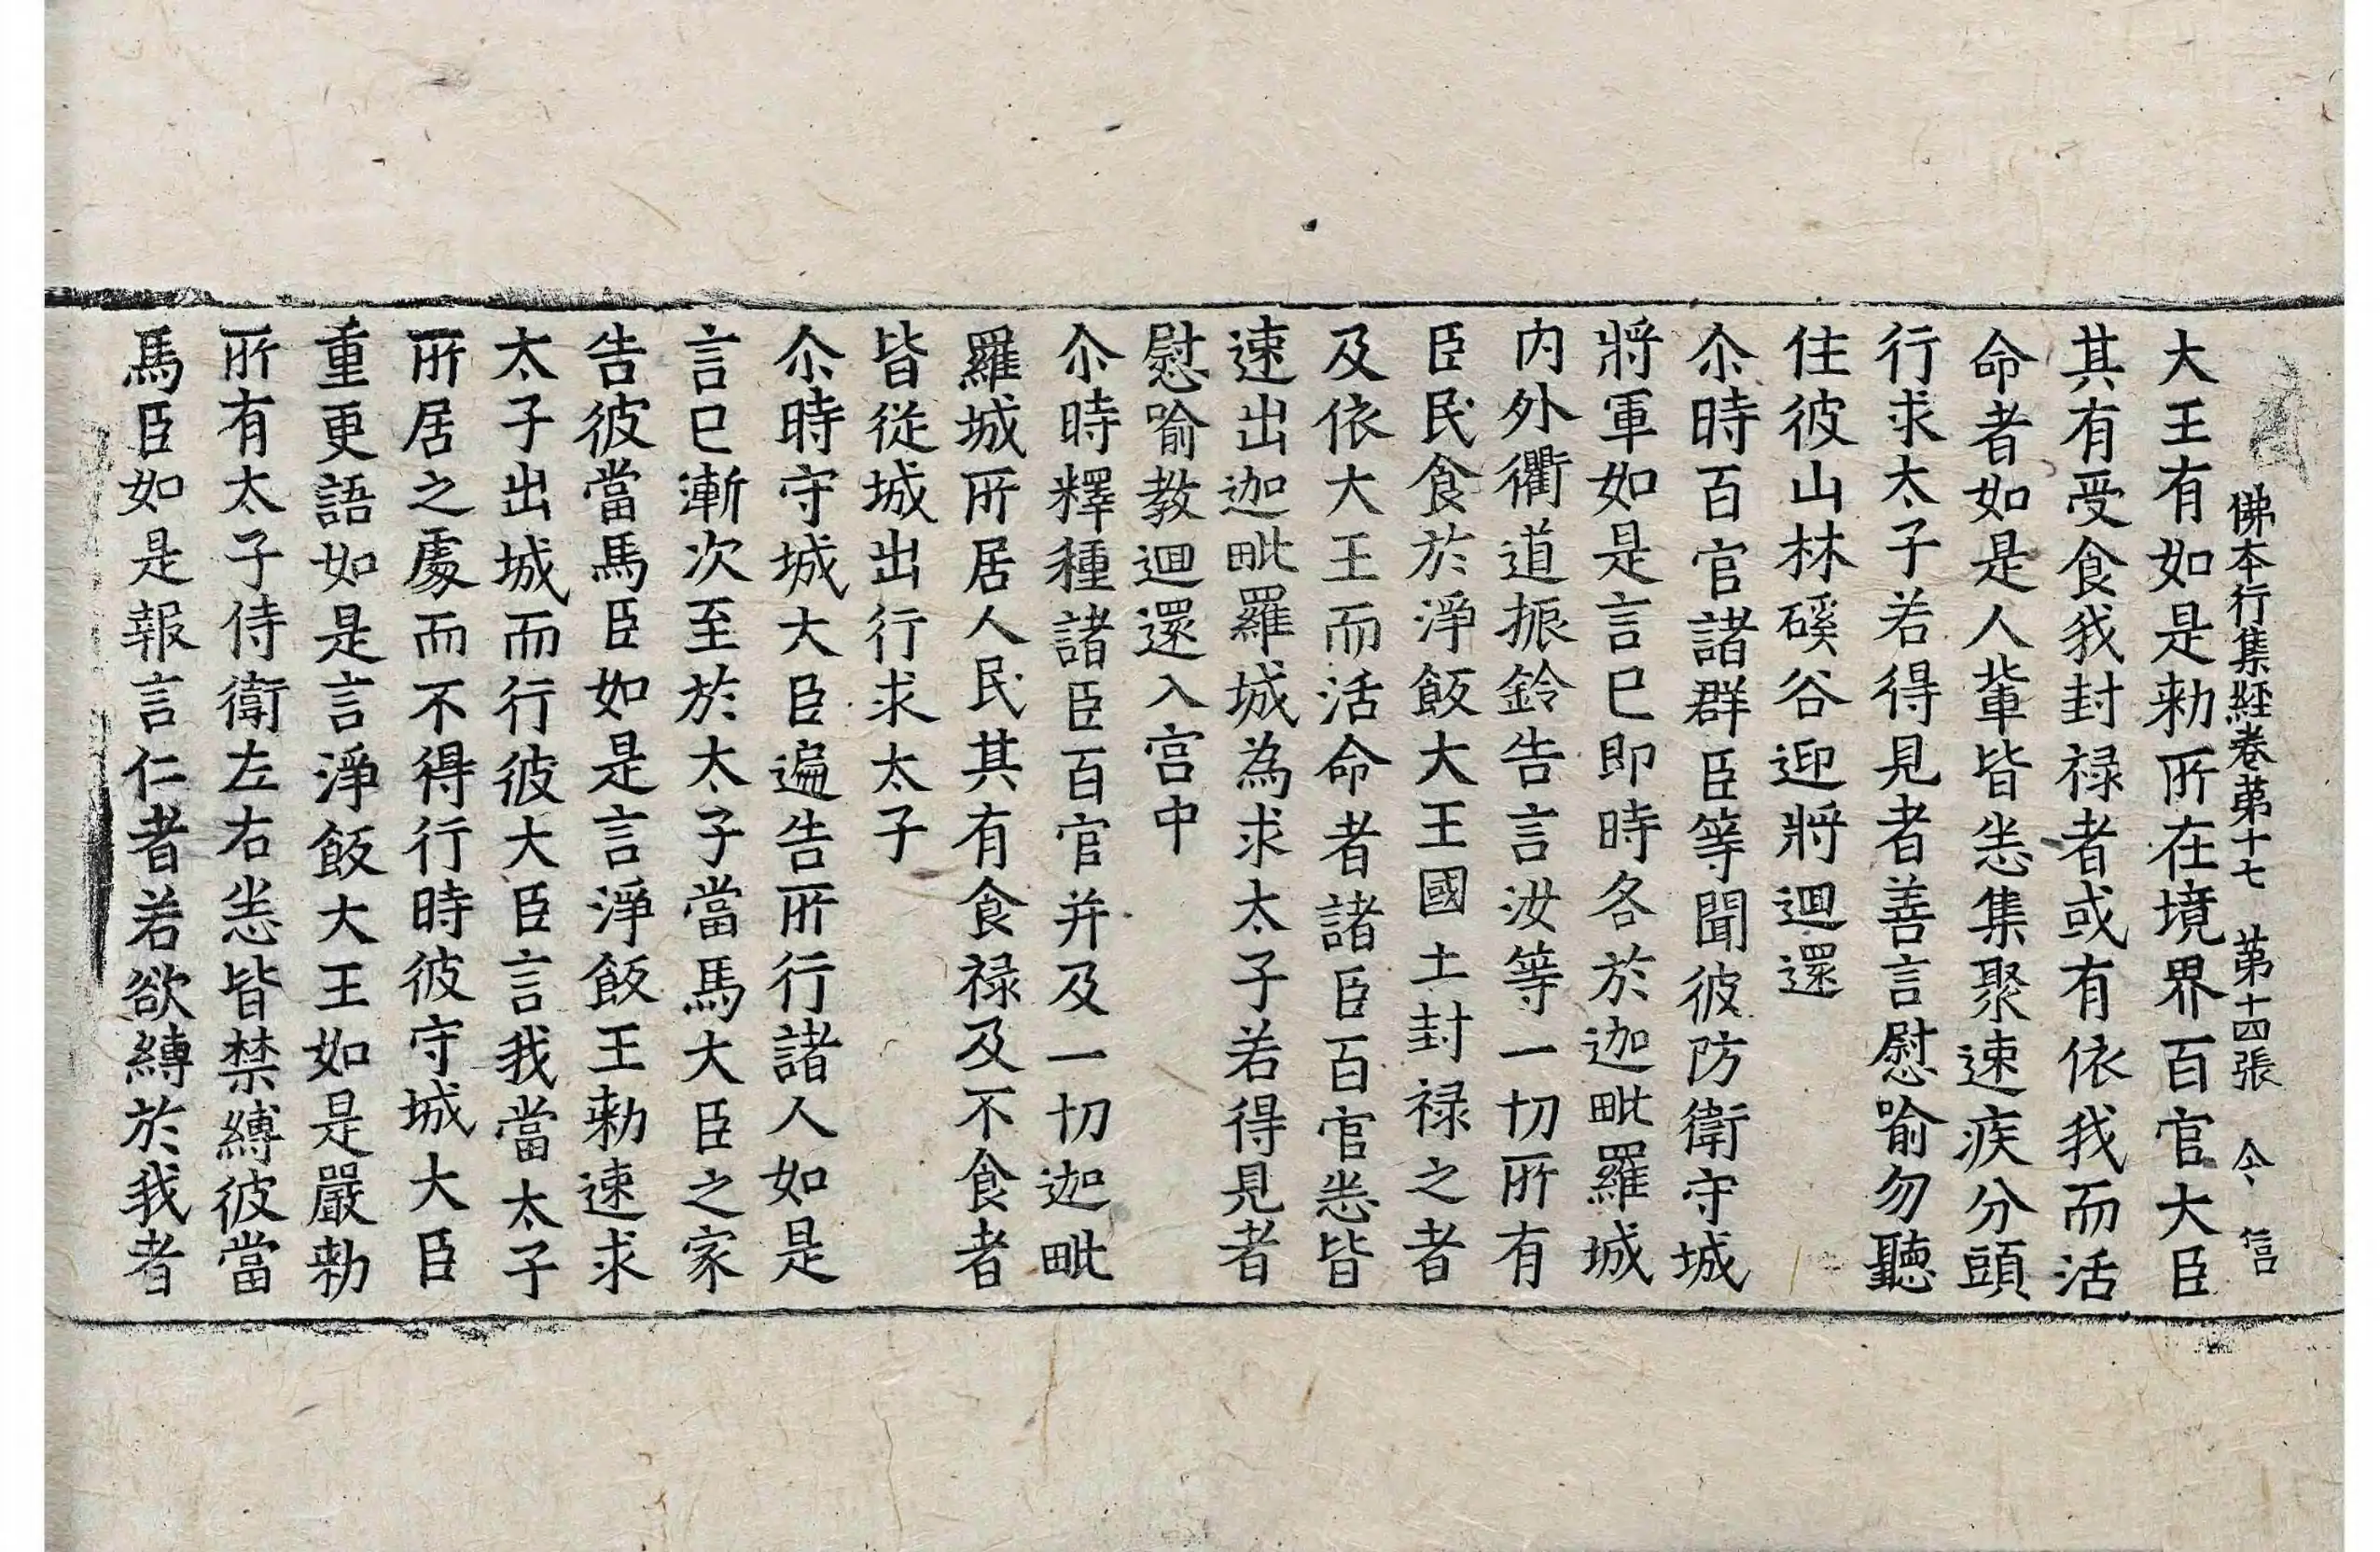 佛本行集經卷第十七 第十四張 令 信
大王有如是勑所在境界百官大臣
其有受食我封禄者或有依我而活
命者如是人軰皆悉集聚速疾分頭
行求太子若得見者善言慰喻勿聽
住彼山林磎谷迎將迴還
尒時百官諸群臣等聞彼防衛守城
將軍如是言已即時各於迦毗羅城
内外衢道振鈴告言汝等一切所有
臣民食於淨飯大王國土封禄之者
及依大王而活命者諸臣百官悉皆
速出迦毗羅城為求太子若得見者
慰喻教迴還入宫中
尒時釋種諸臣百官并及一切迦毗
羅城所居人民其有食禄及不食者
皆從城出行求太子
尒時守城大臣遍告所行諸人如是
言已漸次至於太子當馬大臣之家
告彼當馬臣如是言淨飯王勑速求
太子出城而行彼大臣言我當太子
所居之處而不得行時彼守城大臣
重更語如是言淨飯大王如是嚴勑
所有太子侍衛左右悉皆禁縛彼當
馬臣如是報言仁者若欲縛於我者